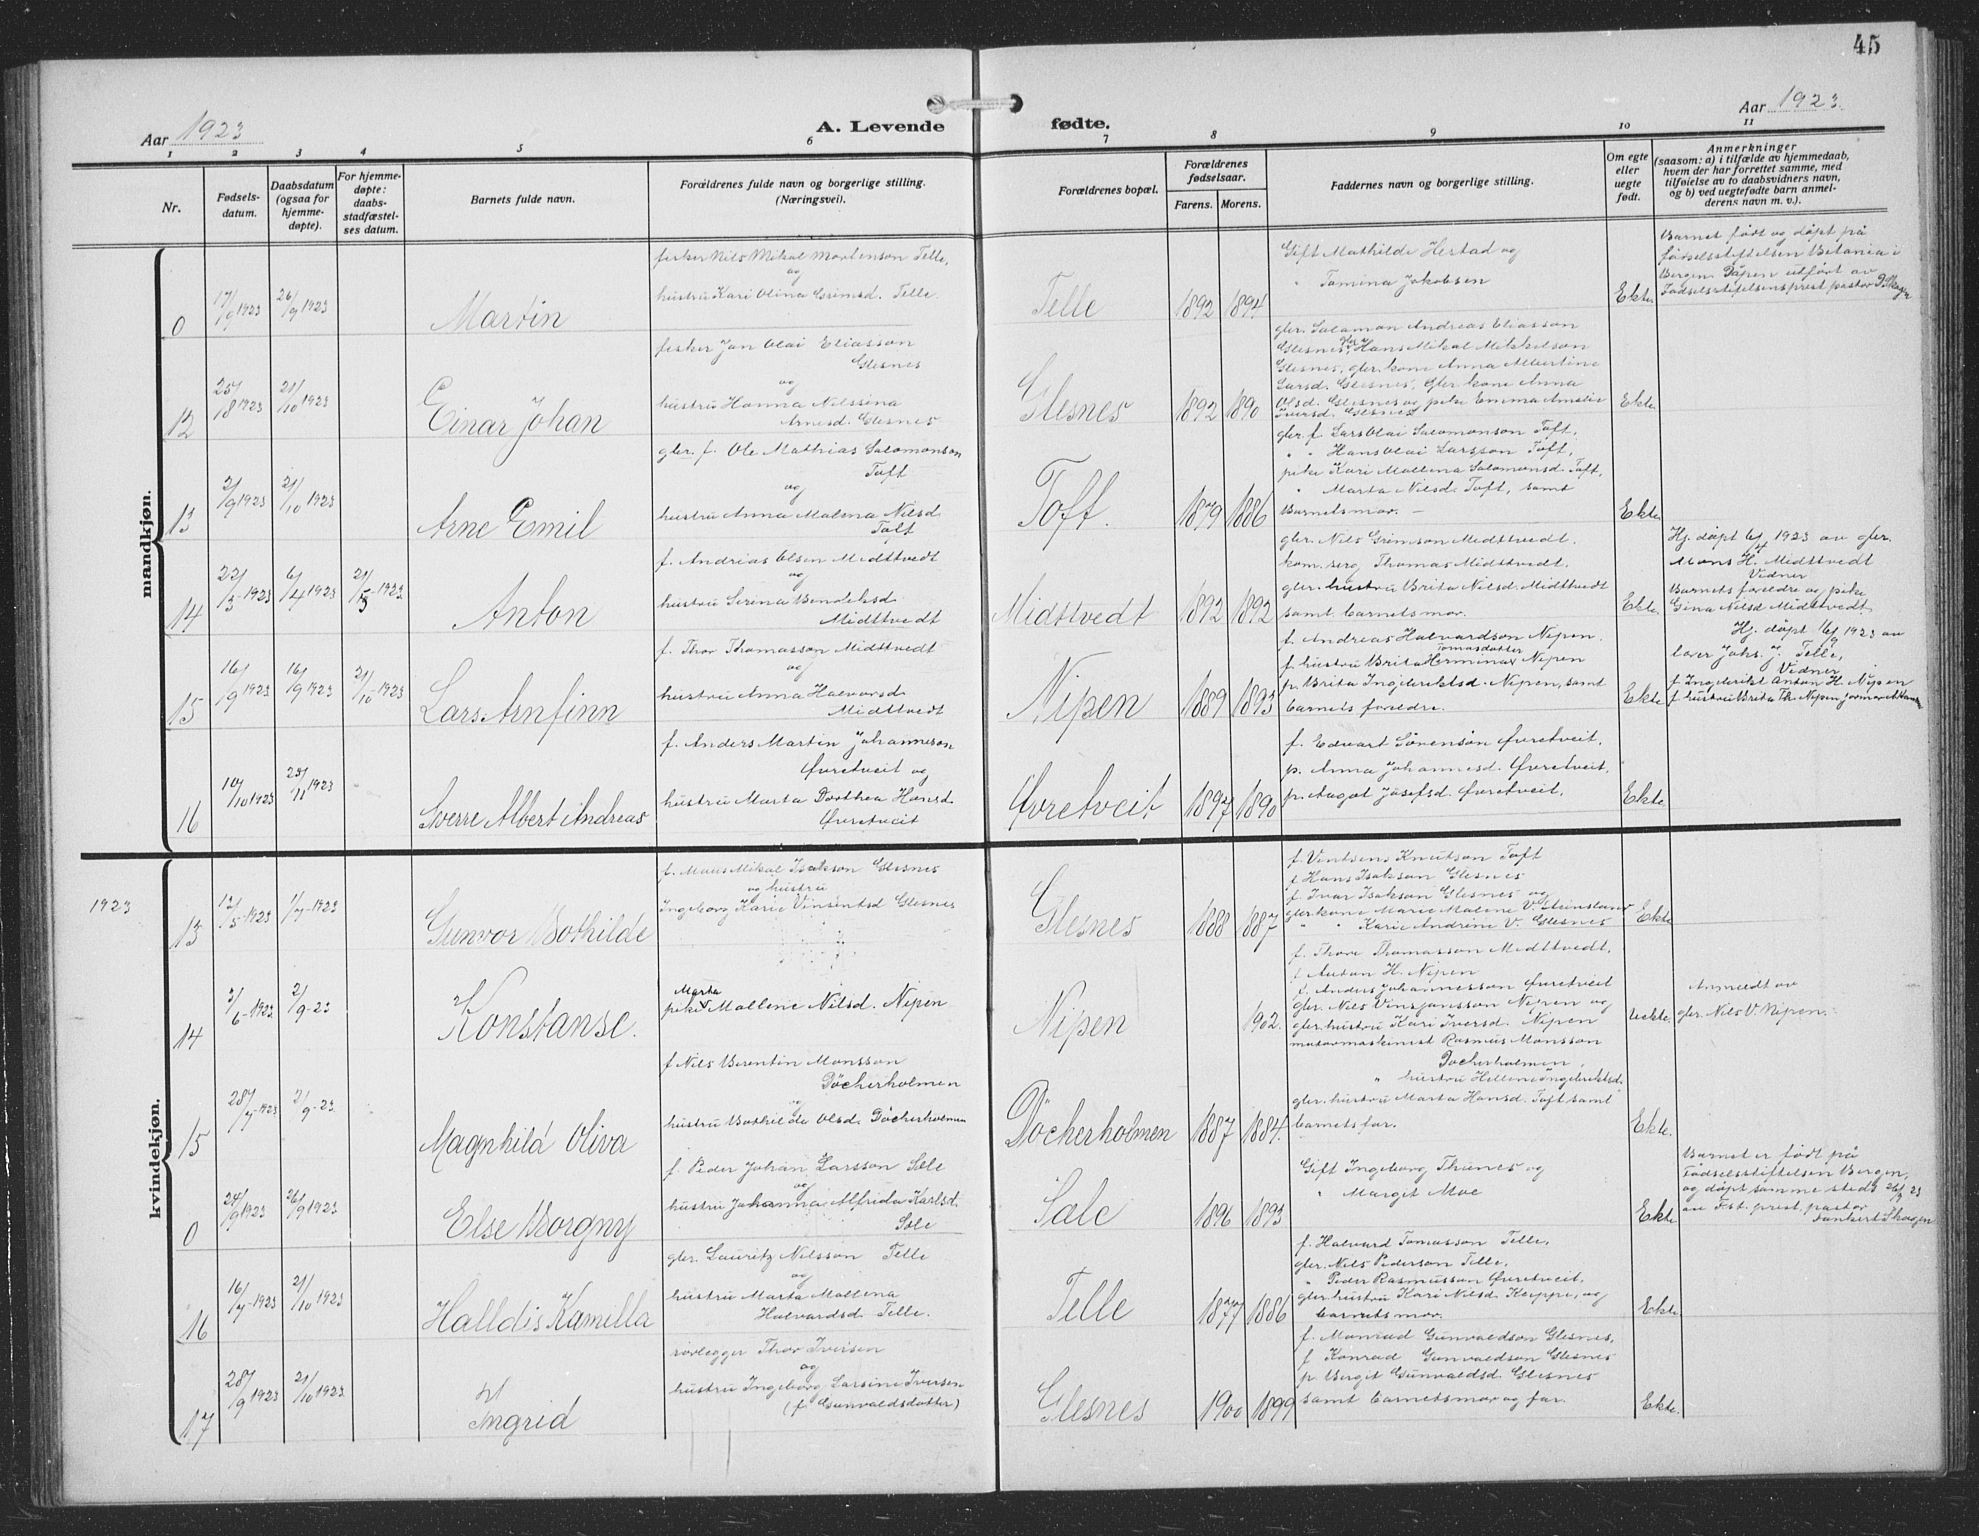 45
Aar 1923
A. Levende
fødte.
Aar 1923.
1 2 3 4 5 6 7 8 9 10 11
Nr.
Fødsels-
datum.
Daabsdatum
(ogsaa for
hjemme-
døpte).
For hjemme-
døpte:
daabs-
stadfæstel-
ses datum.
Barnets fulde navn.
Forældrenes fulde navn og borgerlige stilling.
(Næringsvei).
Forældrenes bopæl.
Forældrenes
fødselsaar.
Farens. Morens.
Faddernes navn og borgerlige stilling.
Om egte
eller
uegte
født.
Anmerkninger
(saasom: a) i tilfælde av hjemmedaab,
hvem der har forrettet samme, med
tilføielse av to daabsvidners navn,
og b) ved uegtefødte barn anmel-
derens navn m. v.).
mandkjøn.
0 17/9 1923 26/9 1923 Martin
fisker Nils Mikal Mortenson Telle,
og
hustru Kari Olina Grimsd. Telle.
Telle 1892 1894
Gift Mathilde Hestad og
" Tomina Jakobsen
Ekte
Barnet født og døpt på
fødselsstiftelsen Betania i
Bergen. Dåpen utført av
Fødselsstiftelsensprest pastor
12 25/8 1923 21/10 1923 Einar Johan
fisker Jan Olai Eliasson
Glesnes
og
hustru Hanna Nilssina
Arnesd. Glesnes
Glesnes 1892 1890
gbr. Salamon Andreas Eliasson
Glesnes, gbr. Hans Mikal Mikkelson
Glesnes, gbr. kone Anna Albertine
Larsd. Glesnes, gbr. kone Anna
Olsd. Glesnes og pike Emma Amalie
Iversd. Glesnes
Ekte
13 2/9 1923 21/10 1923 Arne Emil
gbr. f. Ole Mathias Salomonson
Toft
og
hustru Anna Malena Nilsd.
Toft
Toft. 1879 1886
gbr. f. Lars Olai Salomonson Toft,
" " Hans Olai Larsson Toft,
pike Kari Mallena Salomonsd. Toft,
" Marta Nilsd. Toft, samt
Barnets mor. –
Ekte
14 22/3-1923 6/4 1923 21/5-1923 Anton
f. Andreas Olsen Midttvedt
og
hustru Serina Bendiksd.
Midttvedt
Midttvedt 1892 1892
gbr. Nils Grimson Midttvedt.
kom. serg Thomas Midttvedt.
gbr. hustru Brita Nilsd. Midttvedt
samt barnets mor.
Ekte
Hj. døpt 6/4 1923 av gbr.
Mons H. Midttvedt
Vidner
Barnets foreldre og pike
Gina Nilsd Midttvedt
15 16/9 1923 16/9 1923 21/10-1923 Lars Arnfinn
f. Thor Thomasson Midttvedt
og
hustru Anna Halvorsd.
Midttvedt
Nipen 1889 1893
f. Andreas Halvardson Nipen.
Tomasdatter
f. hustru Brita Hermina Nipen
p. Brita Ingebriktsd. Nipen, samt
barnets foreldre.
Ekte
Hj. døpt 16/9 1923 av
lærer Johs. J. Telle,
Vidner
f. Ingebrikt Anton H. Nipen
f. hustru Brita Th. Nipen
16 10/10 1923 25/11 1923 Sverre Albert Andreas
f. Anders Martin Johanneson
Øvretveit og
hustru Marta Dorthea Hansd.
Øvretveit
Øvretveit 1897 1890
f. Edvart Sørenson Øvretveit.
p. Anna Johannesd. Øvretveit,
p. Aagot Josefsd. Øvretveit.
Ekte
1923
kvindekjøn.
13 12/5-1923 1/7-1923 Gunvor Bothilde
f. Mons Mikal Isakson Glesnes
og hustru
Ingeborg Karie Vinsentsd Glesnes
Glesnes 1888 1887
f. Vintsens Knutson Toft
f. Hans Isakson Glesnes
f. Ivar Isakson Glesnes og
gbr kone Marie Malene V. Steinsland
" " Karie Andrine V. Glesnes
Ekte
14 3/6-1923 2/9-23 Konstanse.
Marta
pike Mallene Nilsd. Nipen
Nipen 1902.
f. Thore Thomasson Midttvedt,
f. Anton H. Nipen
f. Anders Johannesson Øvretveit
gbr. Nils Vinsjansson Nipen og
gbr. hustru Kari Iversd. Nipen
Uekte.
Anmeldt av
gbr. Nils V. Nipen.
15 28/7-1923 2/9-23 Magnhild Oliva
f Nils Berentin Monsson
Døcherholmen
og
hustru Bothilde Olsd. Døcherholmen
Døcherholmen 1887 1884.
motormaskinist Rasmus Monsson
Docherholmen,
" hustru Helline Ingebriktsd.
gbr. hustru Marta Hansd. Toft samt
barnets far.
Ekte.
0 24/9 1923 26/9 1923 Else Borgny
f. Peder Johan Larsson Sæle
og
hustru Johanna Alfrida Karlsd.
Sæle
Sæle 1896 1893
Gift Ingeborg Thunes og
" Margit Moe
Ekte
Barnet er født på
Fødselsstiftelsen Bergen,
og døpt samme sted 26/9 23
av Fst. prest, pastor
Dankert Skagen
16 16/7-1923 21/10 1923 Halldis Kamilla
gbr. Lauritz Nilsson Telle
og
hustru Marta Mallena
Halvardsd. Telle.
Telle 1877 1886
f. Halvard Tomasson Telle,
gbr. Nils Pederson Telle,
" Peder Rasmusson Øvretveit,
gbr hustru Kari Nilsd. Kleppe, og
barnets mor.
Ekte
17 28/9 1923 21/10 1923 Ingrid
rørlegger Thor Iversen
og
hustru Ingeborg Larsine Iversen
(f. Gunvaldsdatter)
Glesnes 1900 1899
f. Monrad Gunvaldson Glesnes,
f Konrad Gunvaldson Glesnes
p. Bergit Gunvaldsd. Glesnes
samt barnets mor og far.
Ekte.